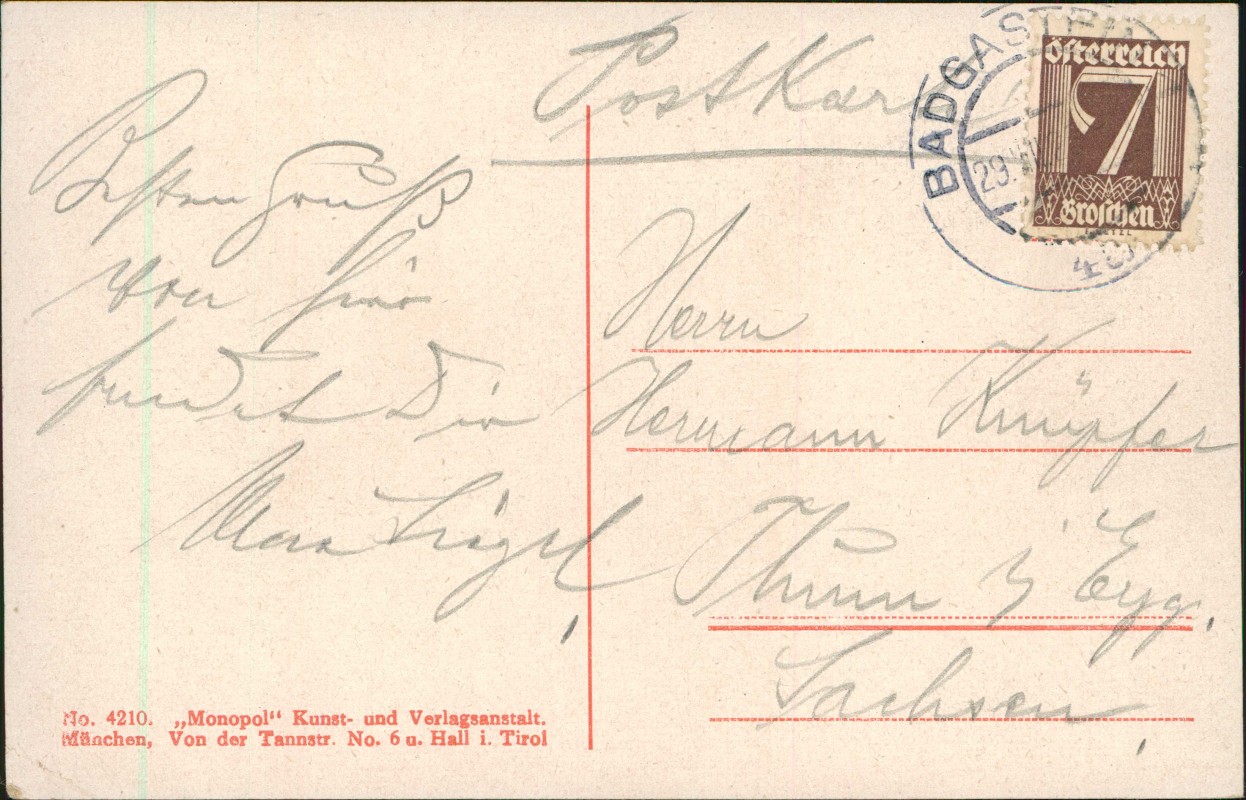 Postkarte
BADGASTEIN
29. VII
Österreich
7
Groschen
Besten Gruß
von hier
sendet Dir
Max
Herrn
Hermann Knüpfer
Thum i Erzg.
Sachsen
No. 4210. „Monopol“ Kunst- und Verlagsanstalt.
München, Von der Tannstr. No. 6 u. Hall i. Tirol